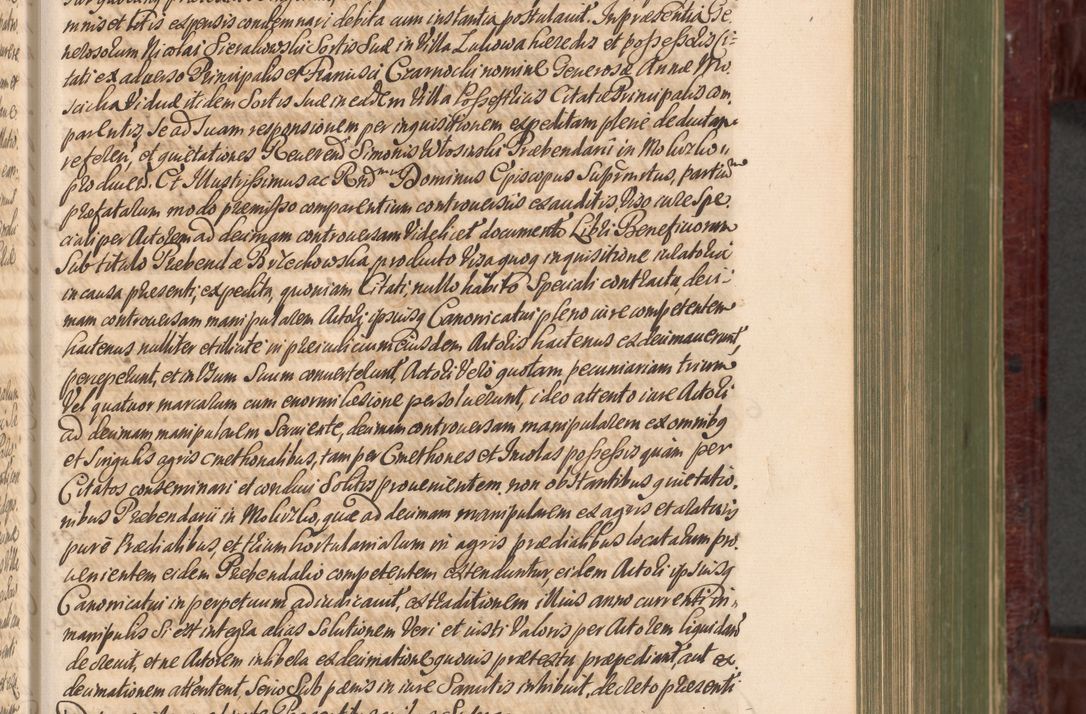 mnis et litis expensis condemnari debita cum instantia postulauit. In præsentia Ge
nerosorum Nicolai Sierakowski Sortis Suæ in Villa Lubowa hæredis et possessoris Ci-
tati ex aduerso Principalis et Francisci Czarnocki nomine Generosæ Annæ Mo
scicka Viduæ itidem Sortis Suæ in eadem Villa possessricis Citatæ Principalis com
parentis, Se ad Suam responsionem per inquisitionem expeditam plene deductam
referen, et quietationes Reuerendi Simonis Wlosinski Præbendarii in Moluzko
producen. Et Illustrissimus ac Rndmus Dominus Episcopus Suprmtus, partium
præfatarum modo præmisso comparentium controuersiis exauditis Viso iure Spe
ciali per Actorem ad decimam controuersam Videlicet documento Libri Beneficiorum
Sub titulo Præbendæ Borzechowska producto Visaquoq inquisitione iuratoria
in causa præsenti, expedita, quoniam Citati, nullo habito Speciali contractu, deci-
mam controuersam manipularem Actori ipsiusq Canonicatui pleno iure competentem
hactenus nulliter et illicite in præiudicium eiusdem Actoris hactenus exdecimauerunt,
perceperunt, et in Vsum Suum conuerterunt, Actori Vero quotam pecuniariam trium
Vel quatuor marcarum cum enormi læsione persoluerunt, ideo attento iure Actori
ad decimam manipularem Seruiente, decimam controuersam manipularem ex omnibq
et Singulis agris cmethonalibus, tam per Cmethones et Incolas possessis quam per
Citatos conseminari et conduci Solitis prouenientem, non obstantibus quietatio-
nibus Præbendarii in Moluzko, quæ ad decimam manipularem ex agris et araturis
pure Prædialibus, et trium hortulaniarum in agris prædialibus locatarum pro-
uenientem eidem Præbendario competentem extenduntur, eidem Actori ipsiusq
Canonicatui in perpetuum adiudicauit, extraditionem illius anno currenti in
manipulis Si est integra alias Solutionem Veri et iusti Valoris per Actorem liquidand
decreuit, et ne Actorem in libera exdecimatione quouis prætextu præpediant, aut ex
decimationem attentent, Serio Sub pænis in iure Sancitis inhibuit, decreto præsenti